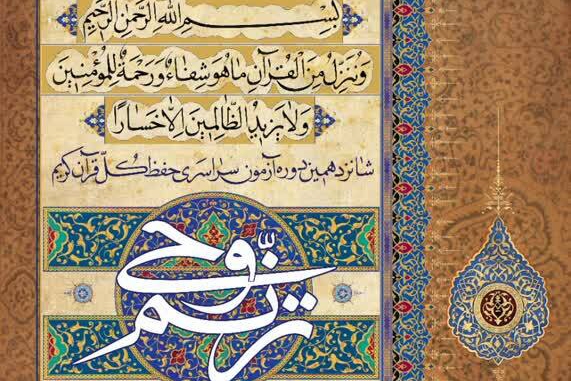 بِسْمِ اللَّهِ الرَّحْمَنِ الرَّحِيمِ
وَنُنَزِّلُ مِنَ الْقُرْآنِ مَا هُوَ شِفَاءٌ وَرَحْمَةٌ لِلْمُؤْمِنِينَ
وَلَا يَزِيدُ الظَّالِمِينَ إِلَّا خَسَارًا
شانزدهمین دوره آزمون سراسری حفظ کل قرآن کریم
ترنم وحی